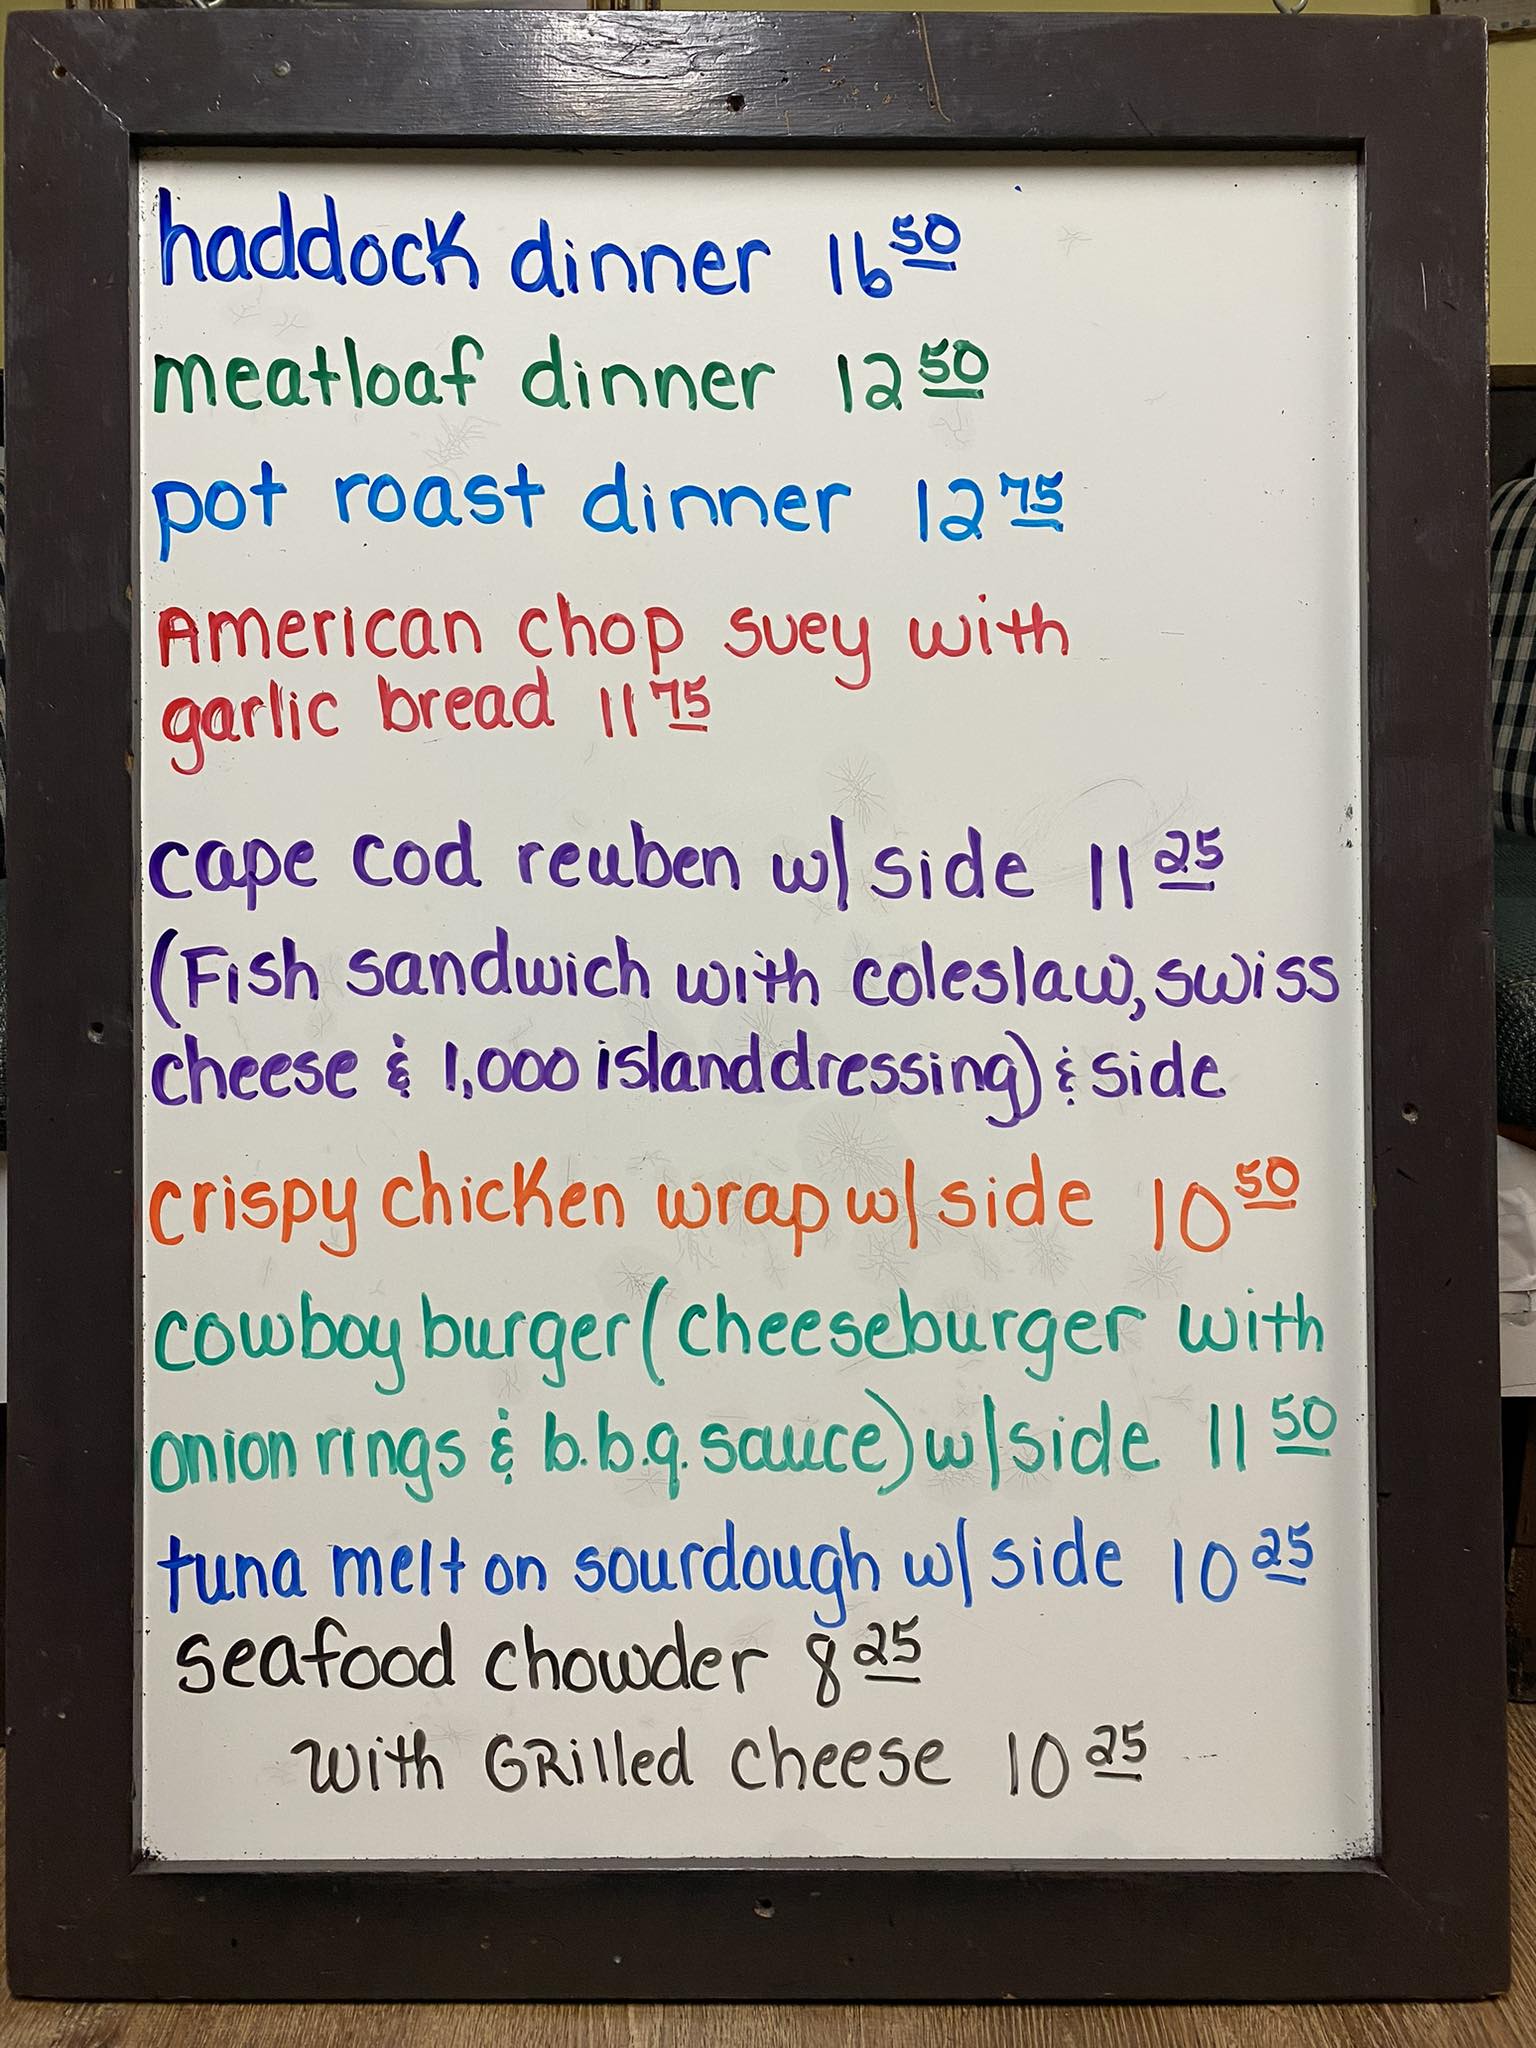 haddock dinner 16 50
meatloaf dinner 12 50
pot roast dinner 12 75
American chop suey with
garlic bread 11 75
cape cod reuben w/ side 11 25
(Fish sandwich with coleslaw, swiss
cheese & 1,000 island dressing) & side
crispy chicken wrap w/ side 10 50
cowboy burger (cheeseburger with
onion rings & b.b.q. sauce) w/ side 11 50
tuna melt on sourdough w/ side 10 25
seafood chowder 8 25
with GRilled cheese 10 25